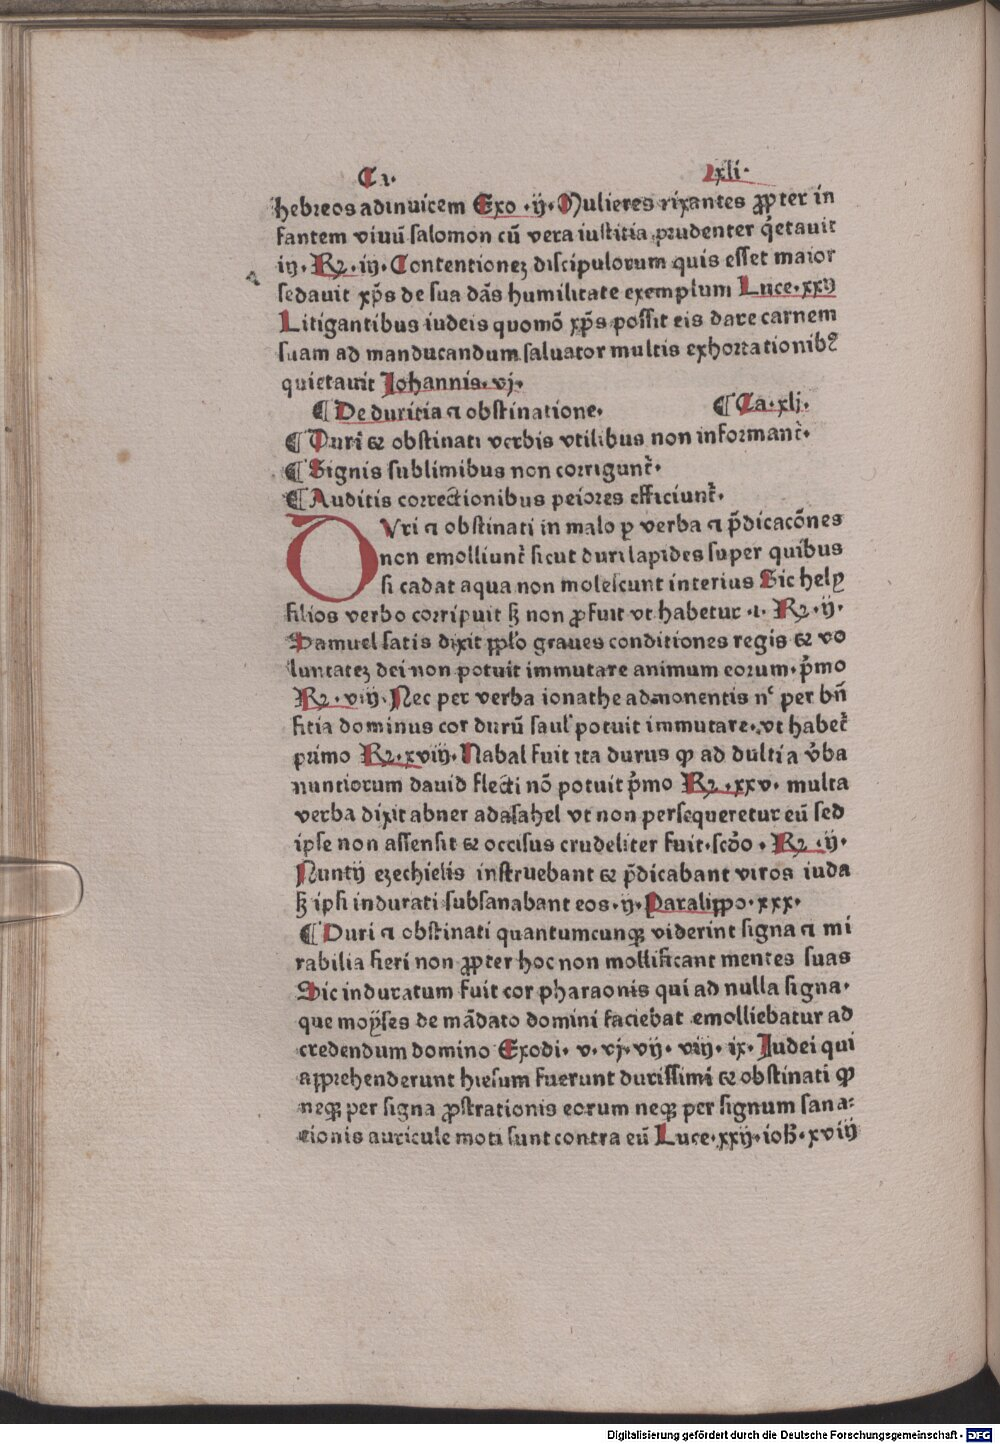 Ca. xli.
hebreos adinuicem Exo .ij. Mulieres rixantes ꝓpter in
fantem viuū salomon cū vera iustitia prudenter q̄etauit
iij. Rꝫ. iij. Contentioneꝫ discipulorum quis esset maior
sedauit xp̄s de sua dās humilitate exemplum Luce. xxij
Litigantibus iudeis quomō xp̄s possit eis dare carnem
suam ad manducandum saluator multis exhortationibꝫ
quietauit Johannis. vj.
¶ De duritia ⁊ obstinatione. ¶ Ca. xlj.
¶ Duri et obstinati verbis vtilibus non informanť.
¶ Signis sublimibus non corrigunť.
¶ Auditis correctionibus peiores efficiunť.
DUri ⁊ obstinati in malo ꝑ verba ⁊ p̄dicacōnes
non emolliunť sicut duri lapides super quibus
si cadat aqua non molescunt interius Sic hely
filios verbo corripuit sꝫ non ꝓfuit vt habetur .i. Rꝫ. ij.
Samuel satis dixit ppl̄o graues conditiones regis et vo
luntateꝫ dei non potuit immutare animum eorum. p̄mo
Rꝫ. viij. Nec per verba ionathe admonentis nᶜ per bn̄
fitia dominus cor durū saul potuit immutare. vt habeť
primo Rꝫ. xviij. Nabal fuit ita durus ꝙ ad dultia v̄ba
nuntiorum dauid flecti nō potuit p̄mo Rꝫ. xxv. multa
verba dixit abner adasahel vt non persequeretur eū sed
ipse non assensit et occisus crudeliter fuit. scd̄o . Rꝫ. ij.
Nuntij ezechielis instruebant et p̄dicabant viros iuda
sꝫ ipsi indurati subsanabant eos. ij. Paralippo. xxx.
¶ Duri ⁊ obstinati quantumcunqꝫ viderint signa ⁊ mi
rabilia fieri non ꝓpter hoc non mollificant mentes suas
Sic induratum fuit cor pharaonis qui ad nulla signa.
que moyses de mādato domini faciebat emolliebatur ad
credendum domino Exodi. v. vj. vij. viij. ix. Judei qui
apprehenderunt hiesum fuerunt durissimi et obstinati ꝙ
neqꝫ per signa ꝓstrationis eorum neqꝫ per signum sana⸗
tionis auricule moti sunt contra eū Luce. xxij. ioh̄. xviij
Digitalisierung gefördert durch die Deutsche Forschungsgemeinschaft - DFG